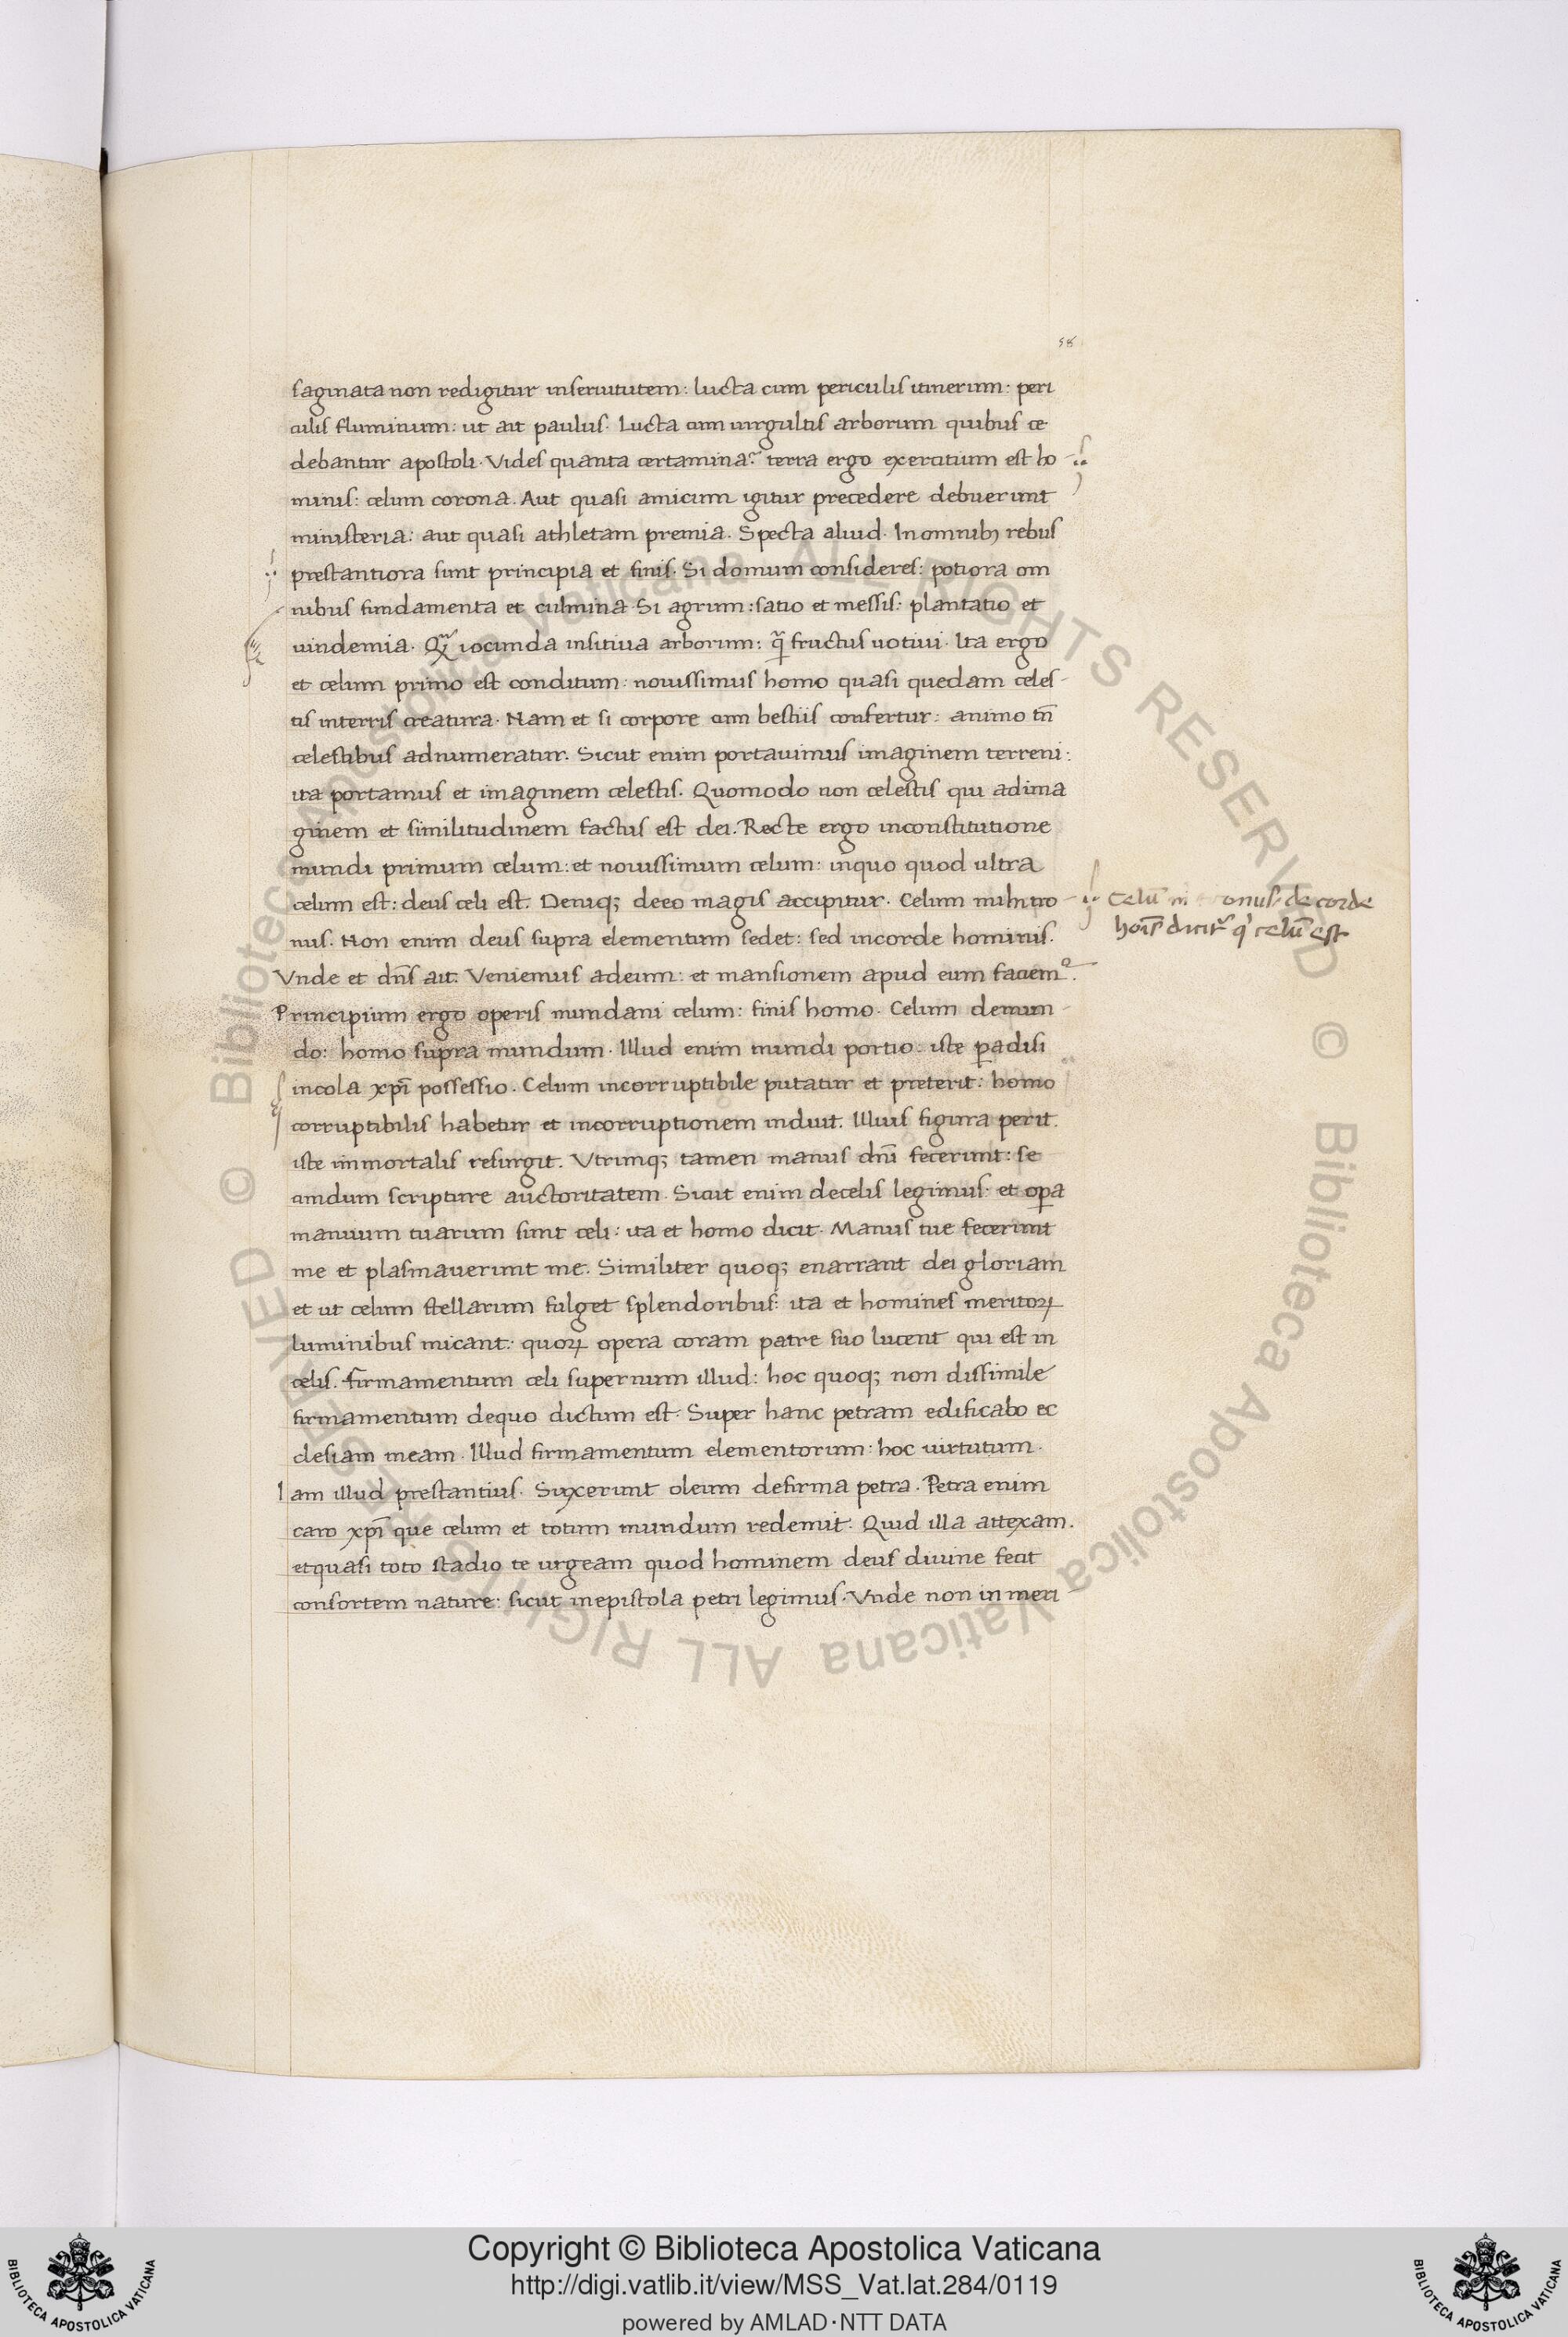 58
saginata non redigitur inseruitutem: lucta cum periculis itinerum: peri
culis fluminum: ut ait paulus. Lucta cum uirgultis arborum quibus ce
debantur apostoli. Vides quanta certamina? terra ergo exercitium est ho-
minis: celum corona. Aut quasi amicum igitur precedere debuerunt
ministeria: aut quasi athletam premia. Specta aliud. In omnibꝫ rebus
prestantiora sunt principia et finis. Si domum consideres: potiora om
nibus fundamenta et culmina. Si agrum: satio et messis: plantatio et
uindemia. Qꝫ iocunda insitiua arborum: q̃ fructus uotiui. Ita ergo
et celum primo est conditum: nouissimus homo quasi quedam celes-
tis interris creatura. Nam et si corpore cum bestiis confertur: animo tn̄
celestibus adnumeratur. Sicut enim portauimus imaginem terreni:
ita portamus et imaginem celestis. Quomodo non celestis qui adima
ginem et similitudinem factus est dei. Recte ergo inconstitutione
mundi primum celum: et nouissimum celum: inquo quod ultra
celum est: deus celi est. Deniqꝫ deeo magis accipitur. Celum mihi tro-
nus. Non enim deus supra elementum sedet: sed incorde hominis.
Vnde et dn̄s ait. Veniemus adeum: et mansionem apud eum faciemꝰ.
Principium ergo operis mundani celum: finis homo. Celum demun-
do: homo supra mundum. Illud enim mundi portio: iste ꝑadisi
incola xp̄i possessio. Celum incorruptibile putatur et preterit: homo
corruptibilis habetur et incorruptionem induit. Illius figura perit.
iste immortalis resurgit. Vtrunqꝫ tamen manus dn̄i fecerunt: se
cundum scripture auctoritatem. Sicut enim decelis legimus: et oꝑa
manuum tuarum sunt celi: ita et homo dicit. Manus tue fecerunt
me et plasmauerunt me. Similiter quoqꝫ enarrant dei gloriam
et ut celum stellarum fulget splendoribus: ita et homines meritoꝝ
luminibus micant: quoꝝ opera coram patre suo lucent qui est in
celis. firmamentum celi supernum illud: hoc quoqꝫ non dissimile
firmamentum dequo dictum est. Super hanc petram edificabo ec
clesiam meam. Illud firmamentum elementorum: hoc uirtutum.
Iam illud prestantius. Suxcerunt oleum defirma petra. Petra enim
caro xp̄i que celum et totum mundum redemit. Quid illa attexam.
etquasi toto stadio te urgeam quod hominem deus diuine fecit
consortem nature: sicut inepistola petri legimus. Vnde non in meri-
Celū de corde
hoīs dicit q celū est
© Biblioteca Apostolica Vaticana ALL RIGHTS RESERVED © Biblioteca Apostolica Vaticana ALL RIGHTS RESERVED
Copyright © Biblioteca Apostolica Vaticana
http://digi.vatlib.it/view/MSS_Vat.lat.284/0119
powered by AMLAD·NTT DATA
BIBLIOTECA APOSTOLICA VATICANA
BIBLIOTECA APOSTOLICA VATICANA